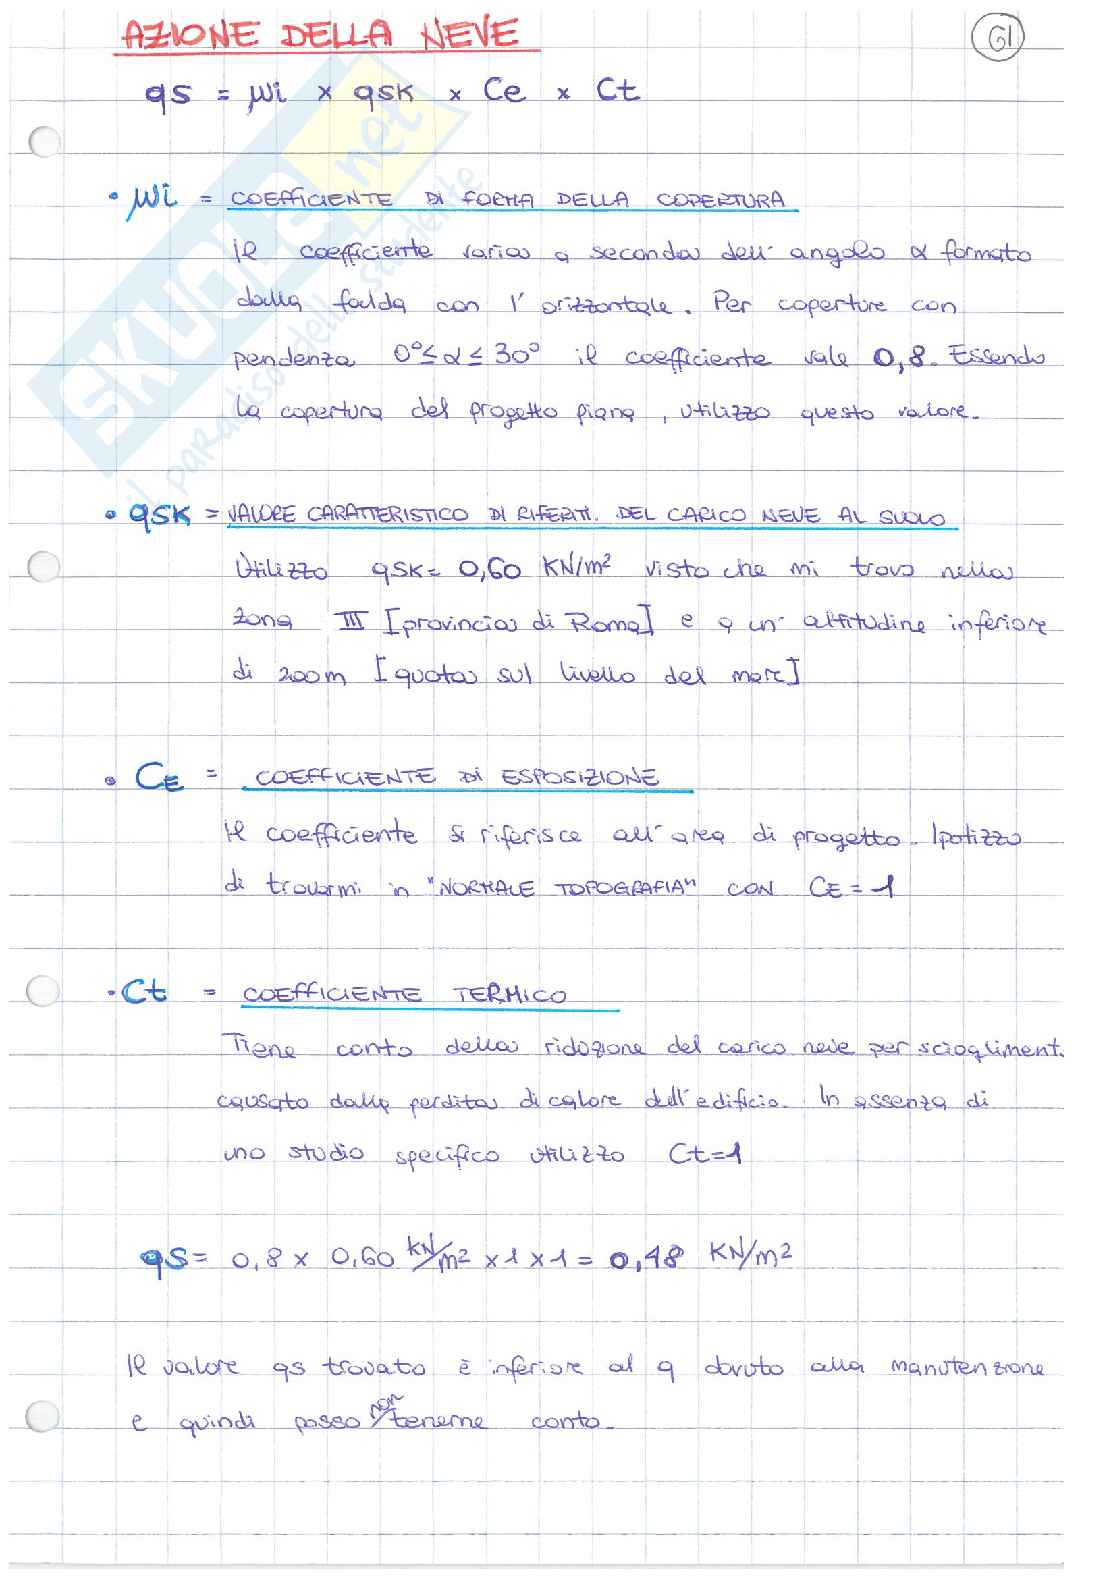 AZIONE DELLA NEVE
61
qs = μi × qsk × Ce × Ct
• μi = COEFFICIENTE DI FORMA DELLA COPERTURA
Il coefficiente varia a seconda dell'angolo α formato
dalla falda con l'orizzontale. Per coperture con
pendenza 0°≤α≤30° il coefficiente vale 0,8. Essendo
la copertura del progetto piana, utilizzo questo valore.
• qsk = VALORE CARATTERISTICO DI RIFERIM. DEL CARICO NEVE AL SUOLO
Utilizzo qsk= 0,60 KN/m² visto che mi trovo nella
zona III [provincia di Roma] e a un'altitudine inferiore
di 200m [quota sul livello del mare]
• CE = COEFFICIENTE DI ESPOSIZIONE
Il coefficiente si riferisce all'area di progetto. Ipotizzo
di trovarmi in "NORMALE TOPOGRAFIA" CON CE=1
• Ct = COEFFICIENTE TERMICO
Tiene conto della riduzione del carico neve per scioglimento
causato dalla perdita di calore dell'edificio. In assenza di
uno studio specifico utilizzo Ct=1
qs= 0,8 × 0,60 kN/m² ×1×1= 0,48 KN/m²
Il valore qs trovato è inferiore al q dovuto alla manutenzione
e quindi posso non tenerne conto.
SKUOLA.net
il paradiso dello studente